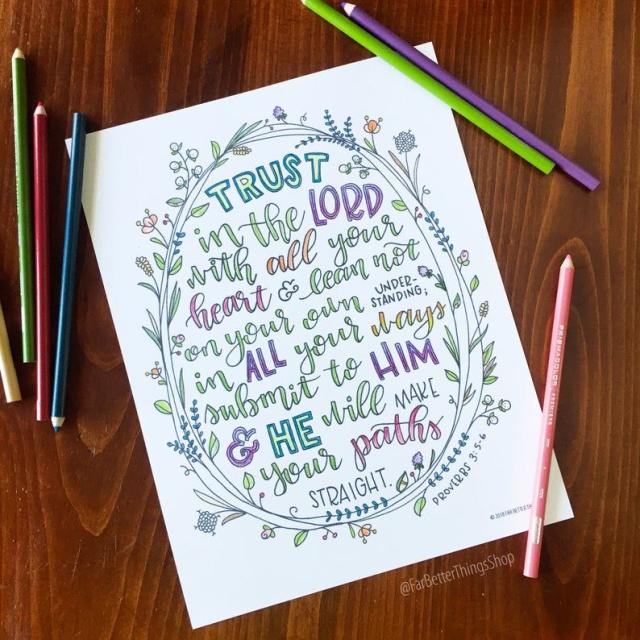 TRUST
in the LORD
with all your
heart & lean not
on your own UNDER
STANDING;
in ALL your ways
submit to HIM
& HE will MAKE
your paths
STRAIGHT.
PROVERBS 3:5-6
@FarBetterThingsShop